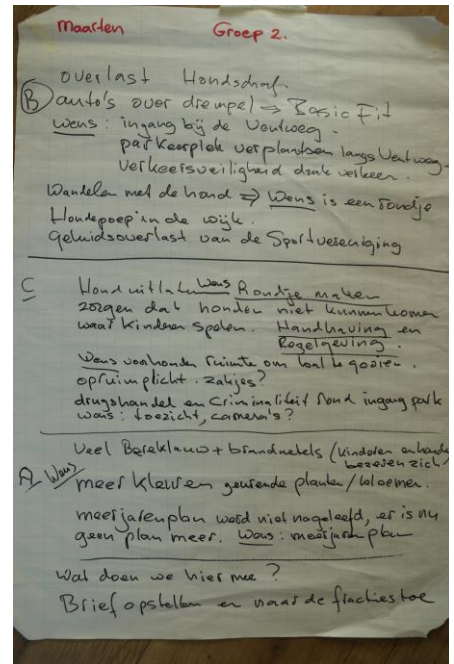 maarten Groep 2.
overlast Hondsdraf.
B auto's over drempel ⇒ Basic Fit
wens: ingang bij de Ventweg.
parkeerplek verplantsen langs Ventweg.
verkeersveiligheid druk verkeer.
Wandelen met de hond ⇒ Wens is een rondje
Hondepoep in de wijk.
Geluidsoverlast van de Sportvereniging
C Hond uitlaten wens Rondje maken
zorgen dat honden niet kunnen komen
waar kinderen spelen. Handhaving en
Regelgeving.
Wens voor honden ruimte om bal te gooien.
opruimplicht. zakjes?
drugshandel en Criminaliteit rond ingang park
wens: toezicht, camera's?
Veel Bereklauw + brandnetels (kinderen en honden
bezeren zich)
A Wens meer kleuren geurende planten/bloemen.
meerjarenplan word niet nageleefd, er is nu
geen plan meer. Wens: meerjarenplan
Wat doen we hier mee?
Brief opstellen en naar de fracties toe